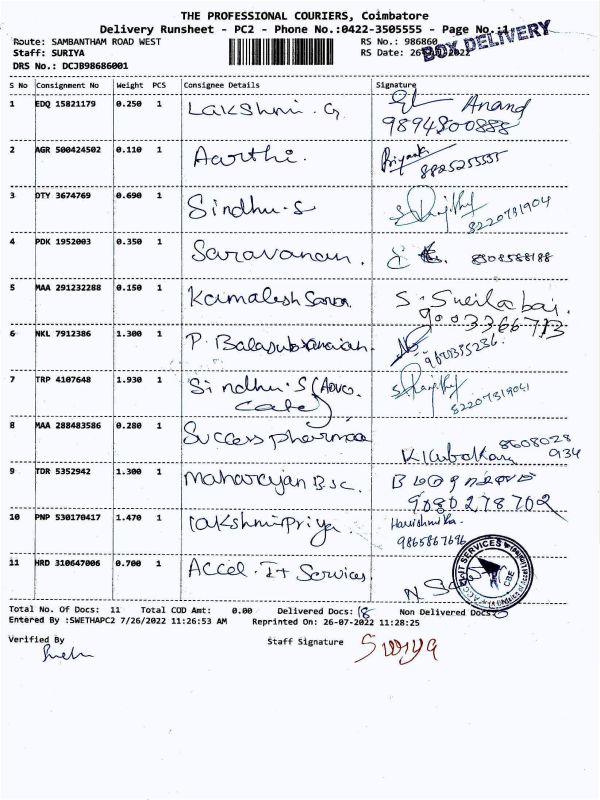 THE PROFESSIONAL COURIERS, Coimbatore
Delivery Runsheet - PC2 - Phone No.:0422-3505555 - Page No.:1
BOX DELIVERY
Route: SAMBANTHAM ROAD WEST
RS No.: 986860
Staff: SURIYA
RS Date: 26-07-2022
DRS No.: DCJB98686001
S No Consignment No Weight PCS Consignee Details Signature
1 EDQ 15821179 0.250 1 Lakshmi. G Anand
9894800888
2 AGR 500424502 0.110 1 Aarthi. Priyanka
8825255535
3 OTY 3674769 0.690 1 Sindhu-S
8220731904
4 PDK 1952003 0.350 1 Saravanan. 8508588188
5 MAA 291232288 0.150 1 Kamalesh Saran S. Sheilabai.
9003366713
6 NKL 7912386 1.300 1 P. Balasubramaian.
9600335236.
7 TRP 4107648 1.930 1 Sindhu.S (Advo.
cate)
8220731904
8 MAA 288483586 0.280 1 Success pharmaa
8608028
934
9 TDR 5352942 1.300 1 Maharajan B.sc.
9080278702
10 PNP 530170417 1.470 1 Lakshmi Priya. Harishmitha.
9865867696
11 HRD 310647006 0.700 1 Accel. It Services
Total No. Of Docs: 11 Total COD Amt: 0.00 Delivered Docs: Non Delivered Docs:
Entered By :SWETHAPC2 7/26/2022 11:26:53 AM Reprinted On: 26-07-2022 11:28:25
Verified By
Staff Signature Suriya